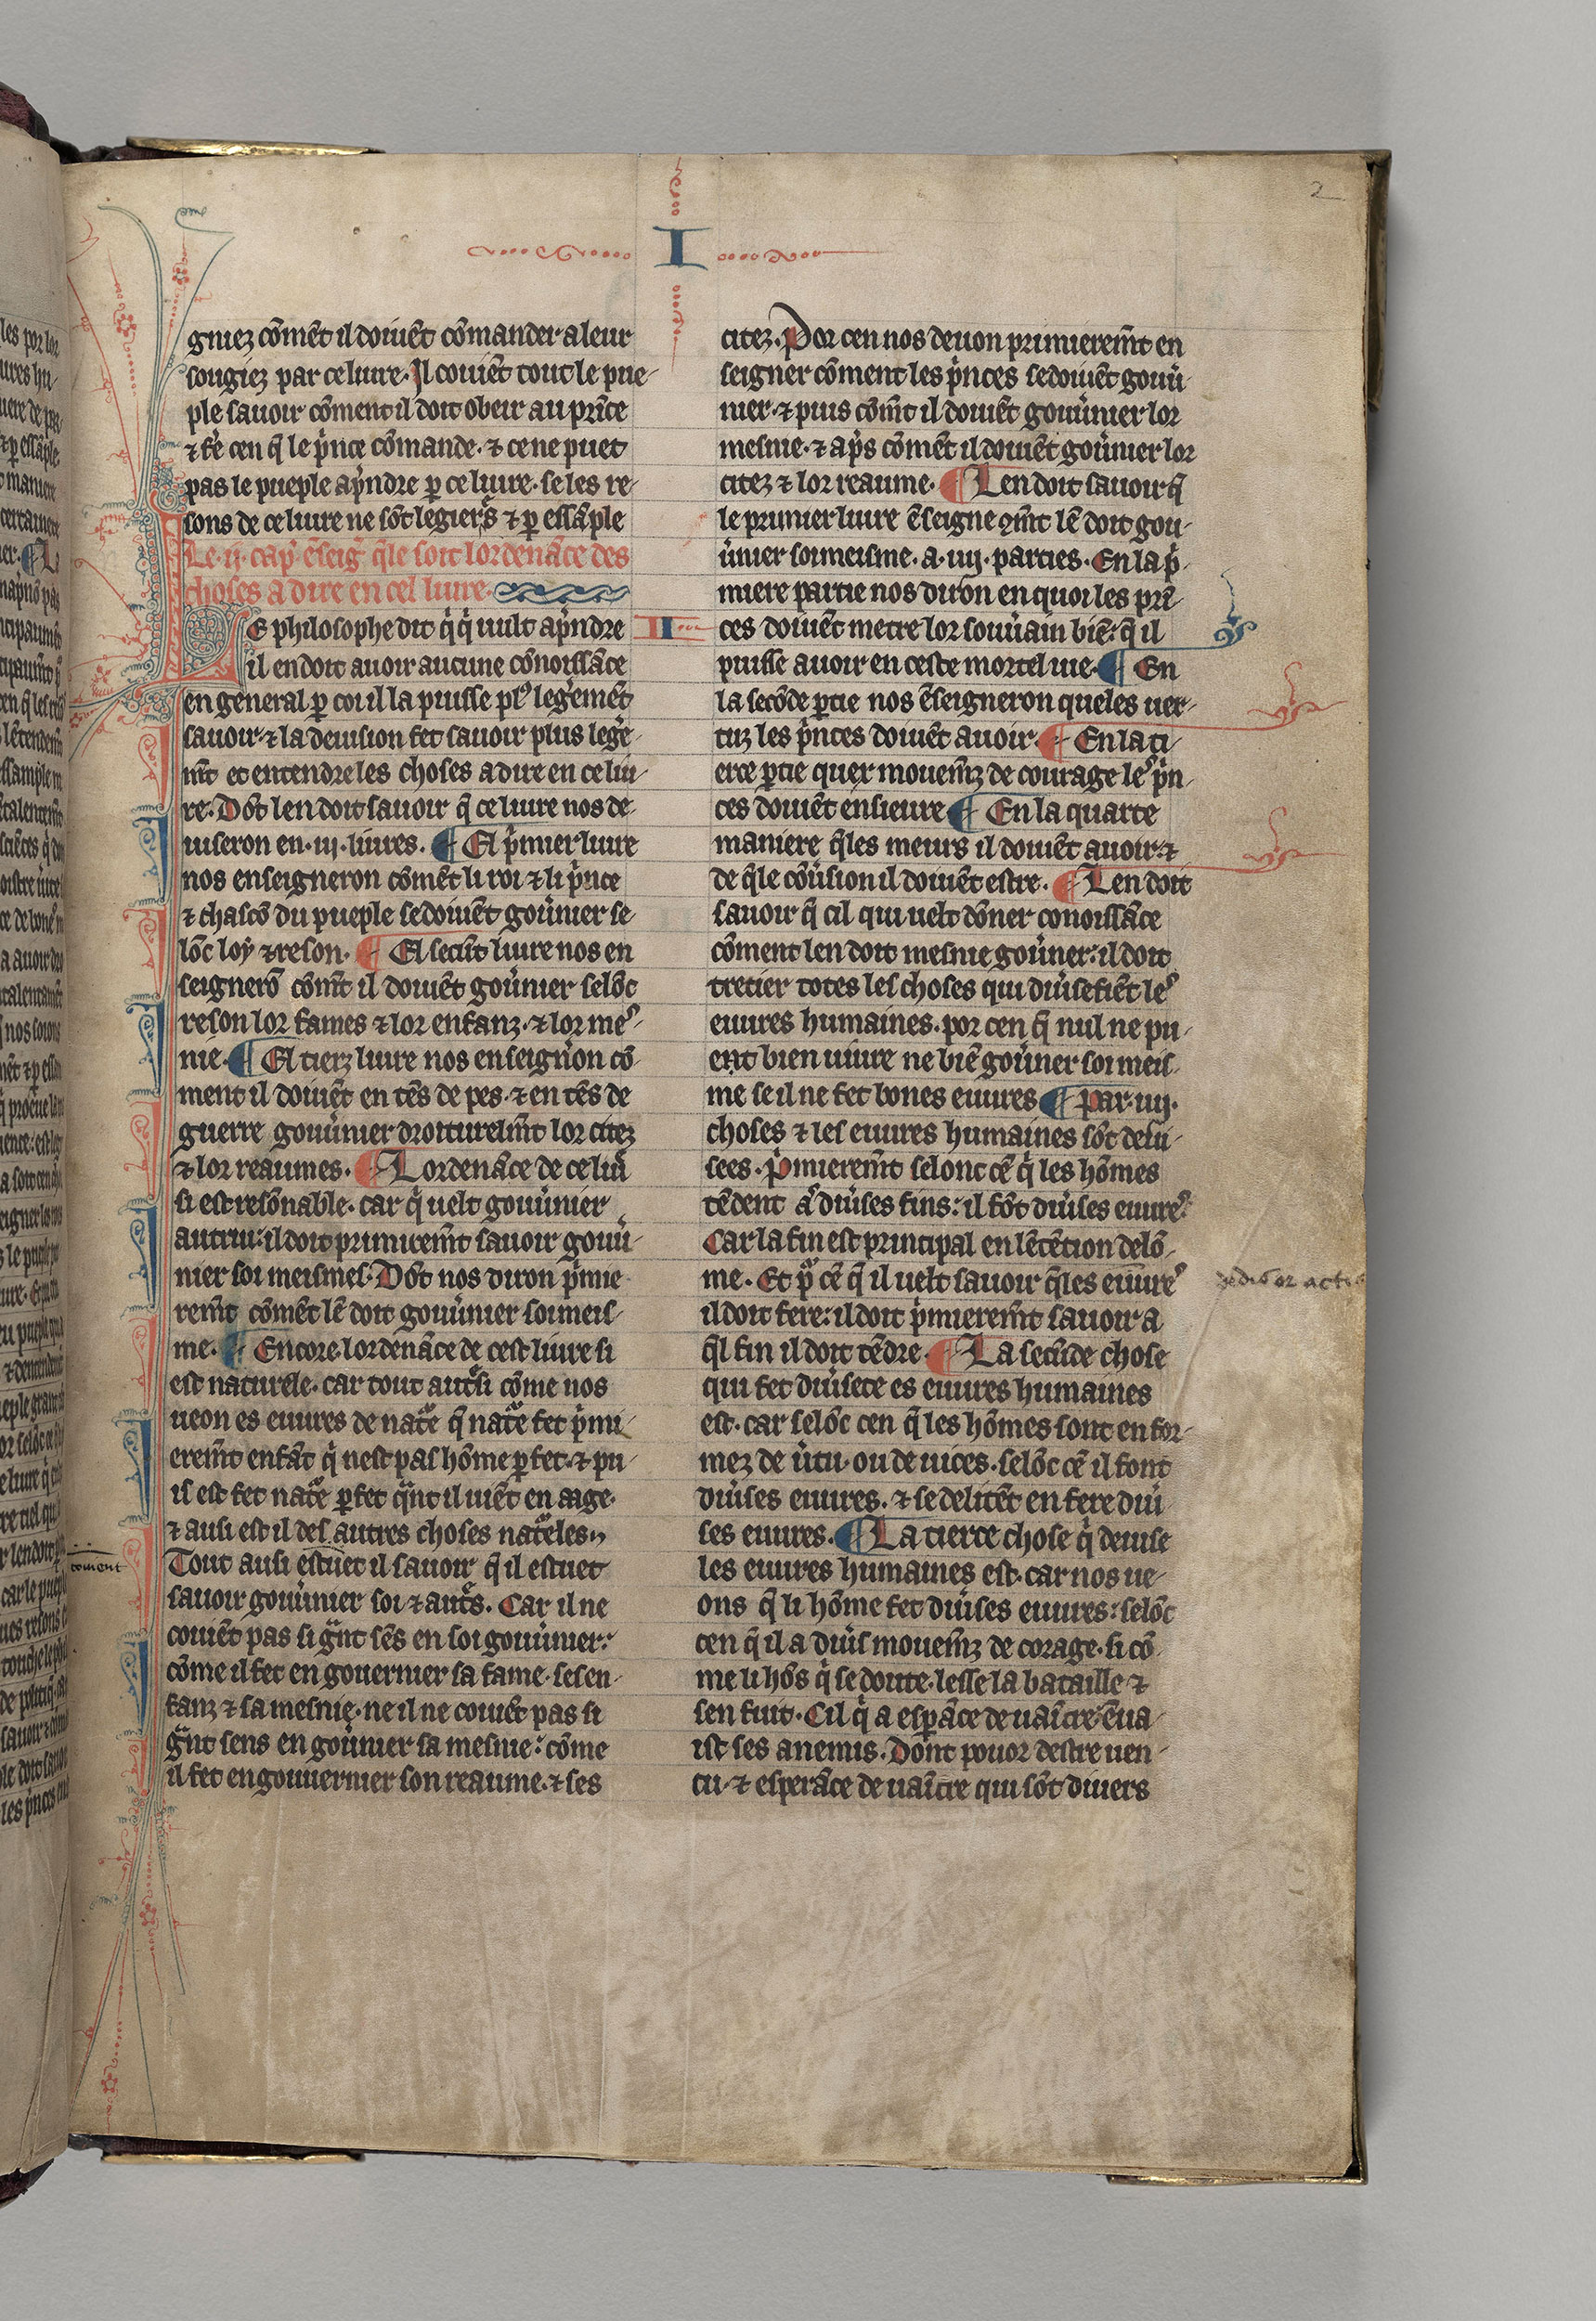 2
I
gniez cōmēt il doiuēt cōmander a leur
sougiez par ce liure. Il couiēt tout le pue-
ple sauoir cōment il doit obeir au prīce
⁊ fe̾ cen q̄ le pͥnce cōmande. ⁊ ce ne puet
pas le pueple apͥndre ꝑ ce liure. se les re-
sons de ce liure ne sōt legiers ⁊ ꝑ essāple
Le .ij. cap̾ ēseig̾ q̄le soit lordenāce des
choses a dire en cel liure.
Le philosophe dit qͥ qͥ uult apͥndre
II
il en doit auoir aucune cōnoissāce
en general ꝑ coi il la puisse plꝰ leg̾emēt
sauoir ⁊ la deuision fet sauoir plus leg̾e-
mt̄ et entendre les choses a dire en ce liu-
re. Dōt len doit sauoir q̄ ce liure nos de-
uiseron en .iij. liures. ¶ El pͥmier liure
nos enseigneron cōmēt li roi ⁊ li pͥnce
⁊ chascō du pueple se doiuēt gou̾nier se-
lōc loy ⁊ reson. ¶ El secūt liure nos en
seignerō cōmt̄ il doiuēt gou̾nier selōc
reson lor fames ⁊ lor enfanz. ⁊ lor mes-
nie. ¶ El tierz liure nos enseign̾on cō-
ment il doiuēt en tēs de pes. ⁊ en tēs de
guerre gouu̾nier droiturelmt̄ lor citez
⁊ lor reaumes. ¶ Lordenāce de ce liu̾
si est resōnable. car qͥ uelt gouu̾nier
autrui: il doit primiremt̄ sauoir gouu̾-
nier soi meismes. Dōt nos diron pͥmie-
remt̄ cōmēt lē doit gouu̾nier soi meis-
me. ¶ Encore lordenāce de cest liure si
est naturele. car tout autͥsi cōme nos
ueon es euures de nat̾e q̄ nat̾e fet pͥmi-
eremt̄ enfāt qͥ nest pas hōme ꝑfet. ⁊ pu-
is est fet nat̾e ꝑfet qͣnt il uiēt en aage.
⁊ ausi est il des autres choses nat̾eles.
Tout ausi estuet il sauoir q̄ il estuet
sauoir gouu̾nier soi ⁊ autͥs. Car il ne
couiēt pas si gͣnt sēs en soi gouu̾nier:
cōme il fet en gouernier sa fame. ses en-
fanz ⁊ sa mesnie. ne il ne couiēt pas si
gͣnt sens en gou̾nier sa mesnie: cōme
il fet en gouuernier son reaume. ⁊ ses
citez. Por cen nos deuon primieremt̄ en
seigner cōment les pͥnces se doiuēt gouu̾-
nier. ⁊ puis cōmt̄ il doiuēt gouu̾nier lor
mesnie. ⁊ apͥs cōmēt il doiuēt gou̾nier lor
citez ⁊ lor reaume. ¶ Len doit sauoir q̄
le primier liure ēseigne ꝯmt̄ lē doit gou-
u̾nier soi meisme. a .iiij. parties. En la pͥ-
miere partie nos diron en quoi les prī-
ces doiuēt metre lor souu̾ain biē: q̄ il
puisse auoir en ceste mortel uie. ¶ En
la secōde ꝑtie nos ēseigneron queles uer-
tuz les pͥnces doiuēt auoir. ¶ En la ti-
erce ꝑtie quex mouemz̄ de courage les pͥn-
ces doiuēt ensieure ¶ En la quarte
maniere q̄les meurs il doiuēt auoir. ⁊
de q̄le cōu̾sion il doiuēt estre. ¶ Len doit
sauoir q̄ cil qui uelt dōner conoissāce
cōment len doit mesnie gou̾ner: il doit
tretier totes les choses qui diu̾sefiēt les
euures humaines. por cen q̄ nul ne pu-
ent bien uiure ne biē gou̾ner soi meis-
me se il ne fet bones euures ¶ Par .iiij.
choses ⁊ les euures humaines sōt deui-
sees. Pͥmieremt̄ selonc cē q̄ les hōmes
tēdent a diu̾ses fins: il fōt diu̾ses euures.
Car la fin est principal en lētētion de lō-
me. Et pͦ cē q̄ il uelt sauoir q̄les euures
il doit fere: il doit pͥmieremt̄ sauoir a
q̄l fin il doit tēdre. ¶ La secūde chose
qui fet diu̾sete es euures humaines
est. car selōc cen q̄ les hōmes sont en for-
mez de u̾tu. ou de uices. selōc cē il font
diu̾ses euures. ⁊ se delitēt en fere diu̾-
ses euures. ¶ La tierce chose qͥ deuise
les euures humaines est. car nos ue-
ons q̄ li hōme fet diu̾ses euures: selōc
cen q̄ il a diu̾s mouemz̄ de corage. si cō-
me li hōs qͥ se doute. lesse la bataille ⁊
sen fuit. Cil qͥ a espāce de uaīcre: ēua-
ist ses anemis. Dont pouor destre uen-
cu. ⁊ esperāce de uaīcre qui sōt diuers
coment